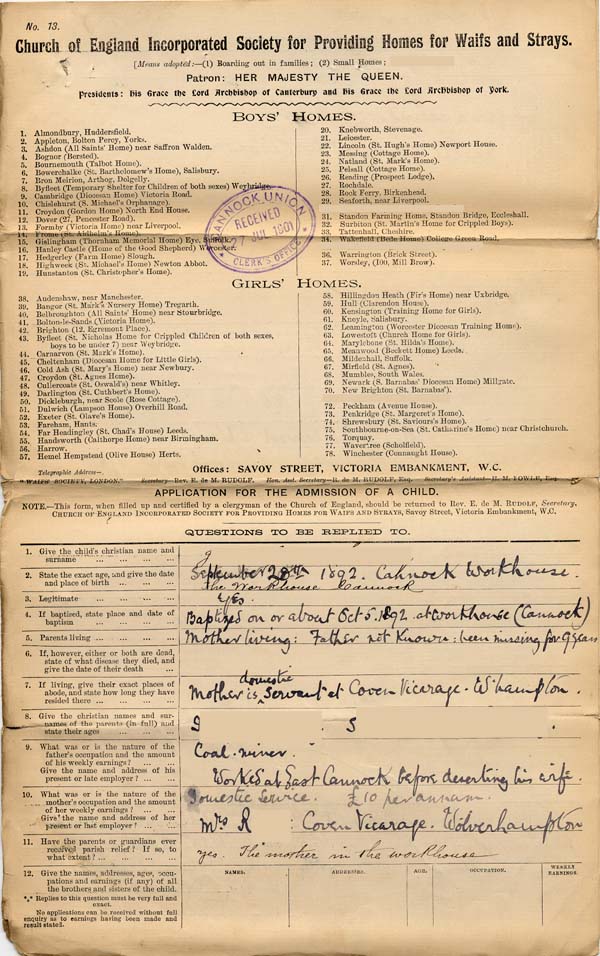 No. 13.
Church of England Incorporated Society for Providing Homes for Waifs and Strays.
[Means adopted:—(1) Boarding out in families; (2) Small Homes;
Patron: HER MAJESTY THE QUEEN.
Presidents: His Grace the Lord Archbishop of Canterbury and his Grace the Lord Archbishop of York.
BOYS' HOMES.
1. Almondbury, Huddersfield.
2. Appleton, Bolton Percy, Yorks.
3. Ashdon (All Saints' Home) near Saffron Walden.
4. Bognor (Bersted).
5. Bournemouth (Talbot Home).
6. Bowerchalke (St. Bartholomew's Home), Salisbury.
7. Bron Meirion, Arthog, Dolgelly.
8. Byfleet (Temporary Shelter for Children of both sexes) Weybridge.
9. Cambridge (Diocesan Home) Victoria Road.
10. Chislehurst (S. Michael's Orphanage).
11. Croydon (Gordon Home) North End House.
12. Dover (27, Pencester Road).
13. Formby (Victoria Home) near Liverpool.
14. Frome (St. Aldhelm's Home).
15. Gislingham (Thornham Memorial Home) Eye, Suffolk.
16. Hanley Castle (Home of the Good Shepherd) Worcester.
17. Hedgerley (Farm Home) Slough.
18. Highweek (St. Michael's Home) Newton Abbot.
19. Hunstanton (St. Christopher's Home).
20. Knebworth, Stevenage.
21. Leicester.
22. Lincoln (St. Hugh's Home) Newport House.
23. Messing (Cottage Home).
24. Natland (St. Mark's Home).
25. Pelsall (Cottage Home).
26. Reading (Prospect Lodge).
27. Rochdale.
28. Rock Ferry, Birkenhead.
29. Seaforth, near Liverpool.
31. Standon Farming Home, Standon Bridge, Eccleshall.
32. Surbiton (St. Martin's Home for Crippled Boys).
33. Tattenhall, Cheshire.
34. Wakefield (Bede Home) College Grove Road.
36. Warrington (Brick Street).
37. Worsley, (100, Mill Brow).
CANNOCK UNION
RECEIVED
27 JUL 1901
CLERK'S OFFICE
GIRLS' HOMES.
38. Audenshaw, near Manchester.
39. Bangor (St. Mark's Nursery Home) Tregarth.
40. Belbroughton (All Saints' Home) near Stourbridge.
41. Bolton-le-Sands (Victoria Home).
42. Brighton (12, Egremont Place).
43. Byfleet (St. Nicholas Home for Crippled Children of both sexes,
boys to be under 7) near Weybridge.
44. Carnarvon (St. Mark's Home).
45. Cheltenham (Diocesan Home for Little Girls).
46. Cold Ash (St. Mary's Home) near Newbury.
47. Croydon (St. Agnes Home).
48. Cullercoats (St. Oswald's) near Whitley.
49. Darlington (St. Cuthbert's Home).
50. Dickleburgh, near Scole (Rose Cottage).
51. Dulwich (Lampson House) Overhill Road.
52. Exeter (St. Olave's Home).
53. Fareham, Hants.
54. Far Headingley (St. Chad's House) Leeds.
55. Handsworth (Calthorpe Home) near Birmingham.
56. Harrow.
57. Hemel Hempstead (Olive House) Herts.
58. Hillingdon Heath (Fir's Home) near Uxbridge.
59. Hull (Clarendon House).
60. Kensington (Training Home for Girls).
61. Kneyle, Salisbury.
62. Leamington (Worcester Diocesan Training Home).
63. Lowestoft (Church Home for Girls).
64. Marylebone (St. Hilda's Home).
65. Meanwood (Beckett Home) Leeds.
66. Mildenhall, Suffolk.
67. Mirfield (St. Agnes).
68. Mumbles, South Wales.
69. Newark (S. Barnabas' Diocesan Home) Millgate.
70. New Brighton (St. Barnabas').
72. Peckham (Avenue House).
73. Penkridge (St. Margaret's Home).
74. Shrewsbury (St. Saviour's Home).
75. Southbourne-on-Sea (St. Catharine's Home) near Christchurch.
76. Torquay.
77. Wavertree (Scholfield).
78. Winchester (Connaught House).
Telegraphic Address—
"WAIFS' SOCIETY, LONDON."
Offices: SAVOY STREET, VICTORIA EMBANKMENT, W.C.
Secretary—Rev. E. de M. RUDOLF. Hon. Asst. Secretary—R. de M. RUDOLF, Esq. Secretary's Assistant—H. M. YOWLE, Esq
APPLICATION FOR THE ADMISSION OF A CHILD.
NOTE.—This form, when filled up and certified by a clergyman of the Church of England, should be returned to Rev. E. de M. RUDOLF, Secretary,
CHURCH OF ENGLAND INCORPORATED SOCIETY FOR PROVIDING HOMES FOR WAIFS AND STRAYS, Savoy Street, Victoria Embankment, W.C.
QUESTIONS TO BE REPLIED TO.
1. Give the child's christian name and
surname
2. State the exact age, and give the date
and place of birth
September 28th 1892. Cannock Workhouse.
The Workhouse Cannock
3. Legitimate
Yes.
4. If baptised, state place and date of
baptism
Baptized on or about Oct 5. 1892 at workhouse (Cannock)
5. Parents living
Mother living: Father not known: been missing for 9 years
6. If, however, either or both are dead,
state of what disease they died, and
give the date of their death
7. If living, give their exact places of
abode, and state how long they have
resided there
Mother is domestic servant at Coven Vicarage. W'hampton.
8. Give the christian names and sur-
names of the parents (in full) and
state their ages
J S
9. What was or is the nature of the
father's occupation and the amount
of his weekly earnings?
Give the name and address of his
present or late employer?
Coal-miner.
Worked at East Cannock before deserting his wife.
10. What was or is the nature of the
mother's occupation and the amount
of her weekly earnings?
Give the name and address of her
present or last employer?
Domestic Service. £10 per annum.
Mrs R : Coven Vicarage. Wolverhampton
11. Have parents or guardians ever
received parish relief? If so, to
what extent?
yes. The mother in the workhouse
12. Give the names, addresses, ages, occu-
pations and earnings (if any) of all
the brothers and sisters of the child.
NAMES. ADDRESSES. AGE. OCCUPATION. WEEKLY EARNINGS.
*** Replies to this question must be very full and
exact.
No applications can be received without full
enquiry as to earnings having been made and
result stated.